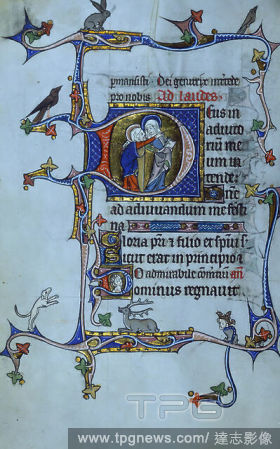 pmansisti · Dei genitrix intcede
pro nobis Ad laudes·
Deus in
adiuto
rium me
um in
tende·
Dñe
ad adiuuandum me festi
na
Gloria pri & filio et spiui s̄
sicut erat in principio &
O admirabile comiciū añ
Dominus regnauit
TPG
www.tpgnews.com/ 達志影像